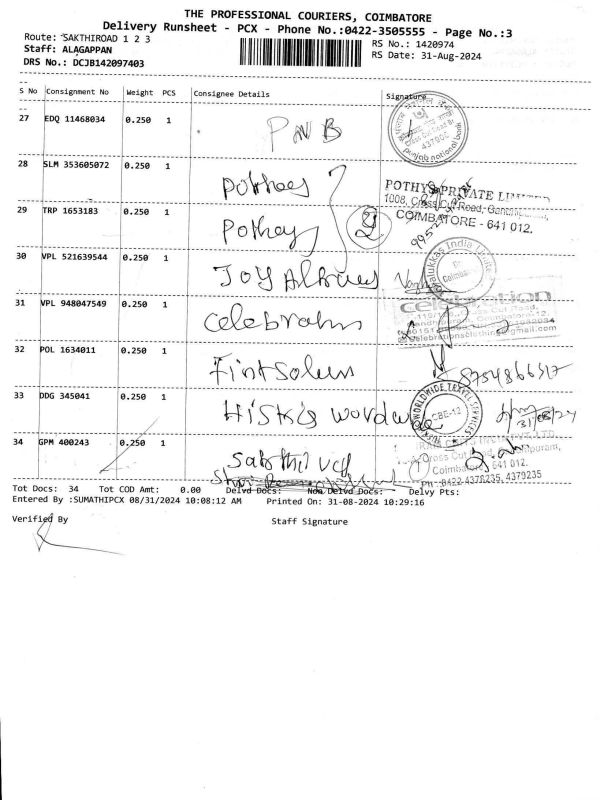 THE PROFESSIONAL COURIERS, COIMBATORE
Delivery Runsheet - PCX - Phone No.:0422-3505555 - Page No.:3
Route: SAKTHIROAD 1 2 3
Staff: ALAGAPPAN
DRS No.: DCJB142097403
RS No.: 1420974
RS Date: 31-Aug-2024
S No Consignment No Weight PCS Consignee Details Signature
27 EDQ 11468034 0.250 1 PNB
punjab national bank
28 SLM 353605072 0.250 1 Pothys
POTHYS PRIVATE LIMITED
1008, Cross Cut Road,
COIMBATORE - 641 012.
29 TRP 1653183 0.250 1 Pothys 2
30 VPL 521639544 0.250 1 Joy Alukkas
India
31 VPL 948047549 0.250 1 Celebration
celebration
32 POL 1634011 0.250 1
8754866517
33 DDG 345041 0.250 1
WORLDWIDE TRAVEL SERVICES
CBE-12
31/08/24
34 GPM 400243 0.250 1
Cross Cut
Coimbatore 641 012.
Ph: 0422-4378235, 4379235
Tot Docs: 34 Tot COD Amt: 0.00 Delvd Docs: Non Delvd Docs: Delvy Pts:
Entered By :SUMATHIPCX 08/31/2024 10:08:12 AM Printed On: 31-08-2024 10:29:16
Verified By Staff Signature